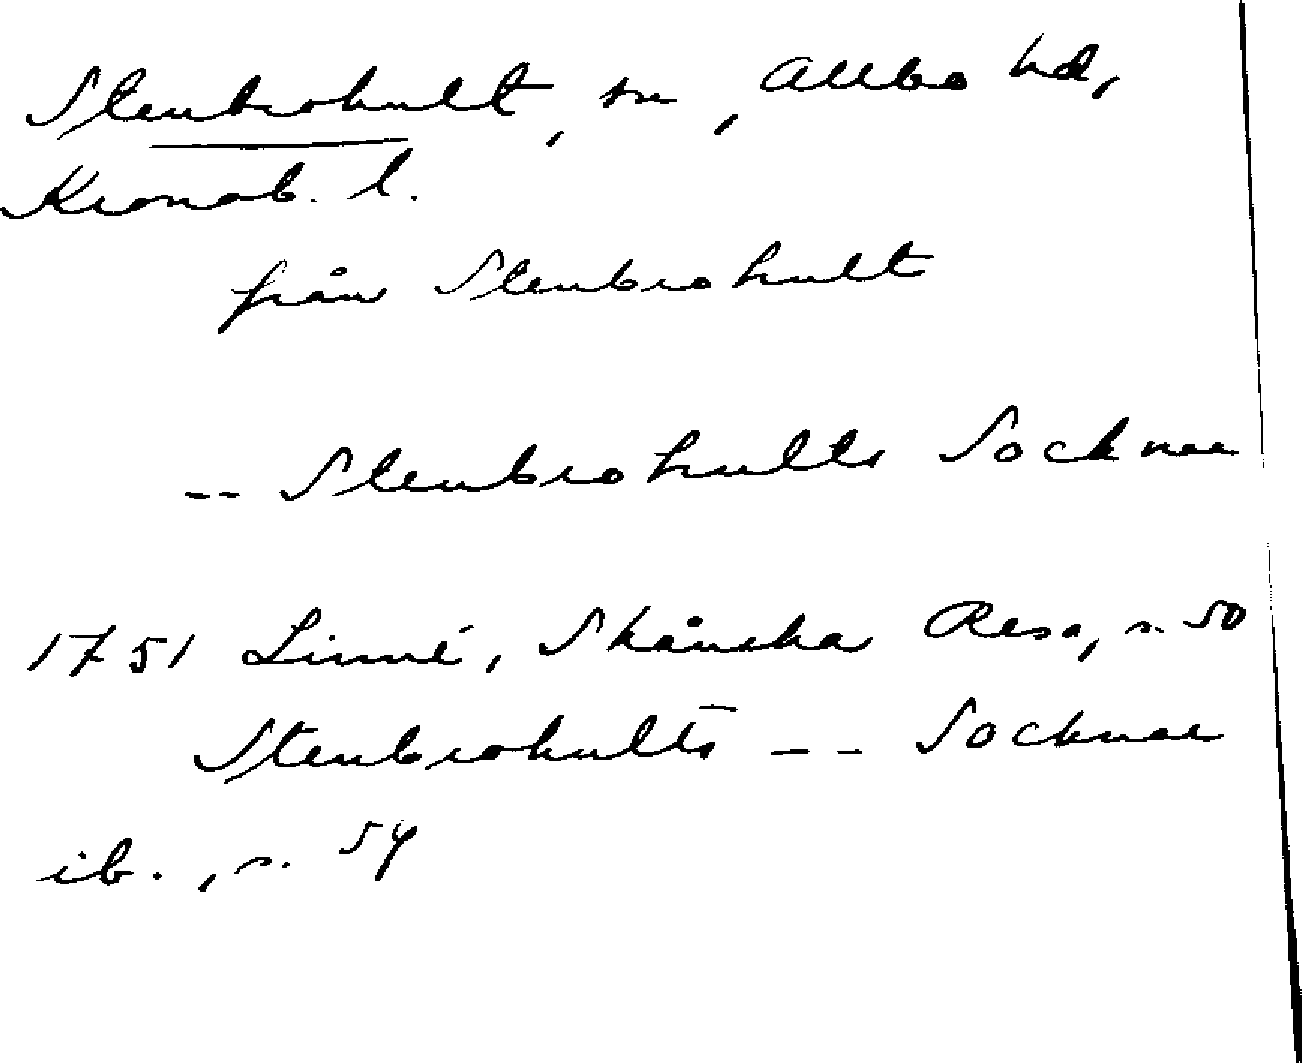 Stenbrohult, sn, Allbo hd,
Kronob. l.
från Stenbrohult
-- Stenbrohults Socknar
1751 Linné, Skånska Resa, s. 50
Stenbrohults -- Socknar
ib., s. 54